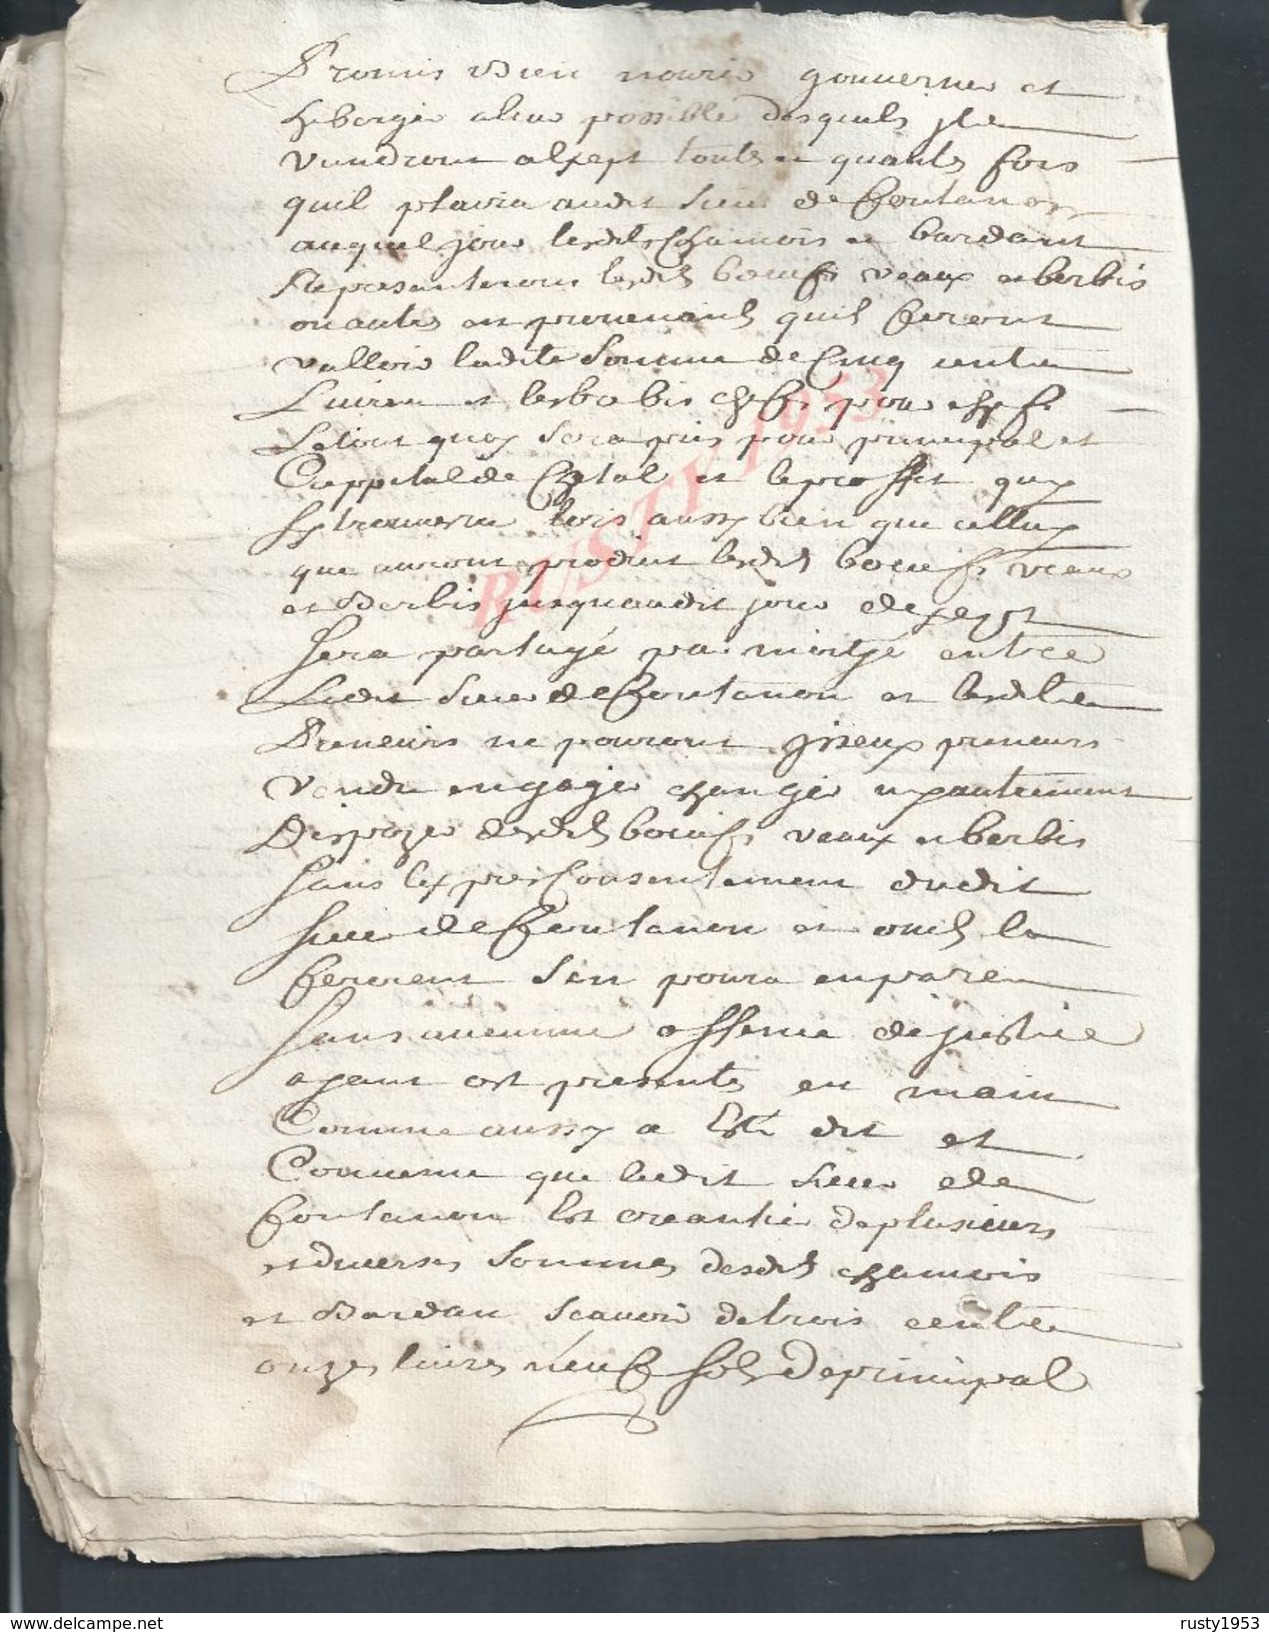 Promis Bien nourir gouverner et
heberger a leur possible desquels ils
viendront a lexept toutes et quantes fois
quil plaira audit Sieur de Fontanon
auquel jour lesdits Chamois et bardant
Representeront lesdits boeufs veaux et berbis
ou autres en provenants quils feront
valloir ladite Somme de Cinq cents
Livres et les berbis chefs pour chefs
Le tout quoy Sera pris pour principal et
Cappital de Chetal et le proffit quy
Sy trouvera lors aussy bien que celluy
que auront produit lesdits boeufs veaux
et Berbis jusquaudit jour dexept
Sera partagé par moityé entre
Ledit Sieur de Fontanon et lesdits
Preneurs ne pouront yceux preneurs
Vendre engager changer ny autrement
Dispozer desdits boeufs veaux et berbis
Sans lexpres Consentement dudit
Sieur de Fontanon et ou ils le
feroient Sen poura emparer
Sans aucunne offence de justice
ayant est presente en main
Comme aussy a Esté dit et
Convenu que ledit Sieur de
Fontanon Est creantier de plusieurs
et diverses Sommes desdits chamois
et Bardan Scavoir de trois cents
onze livres neuf Sols de principal
RUSTY 1953
delcampe.net
rusty1953